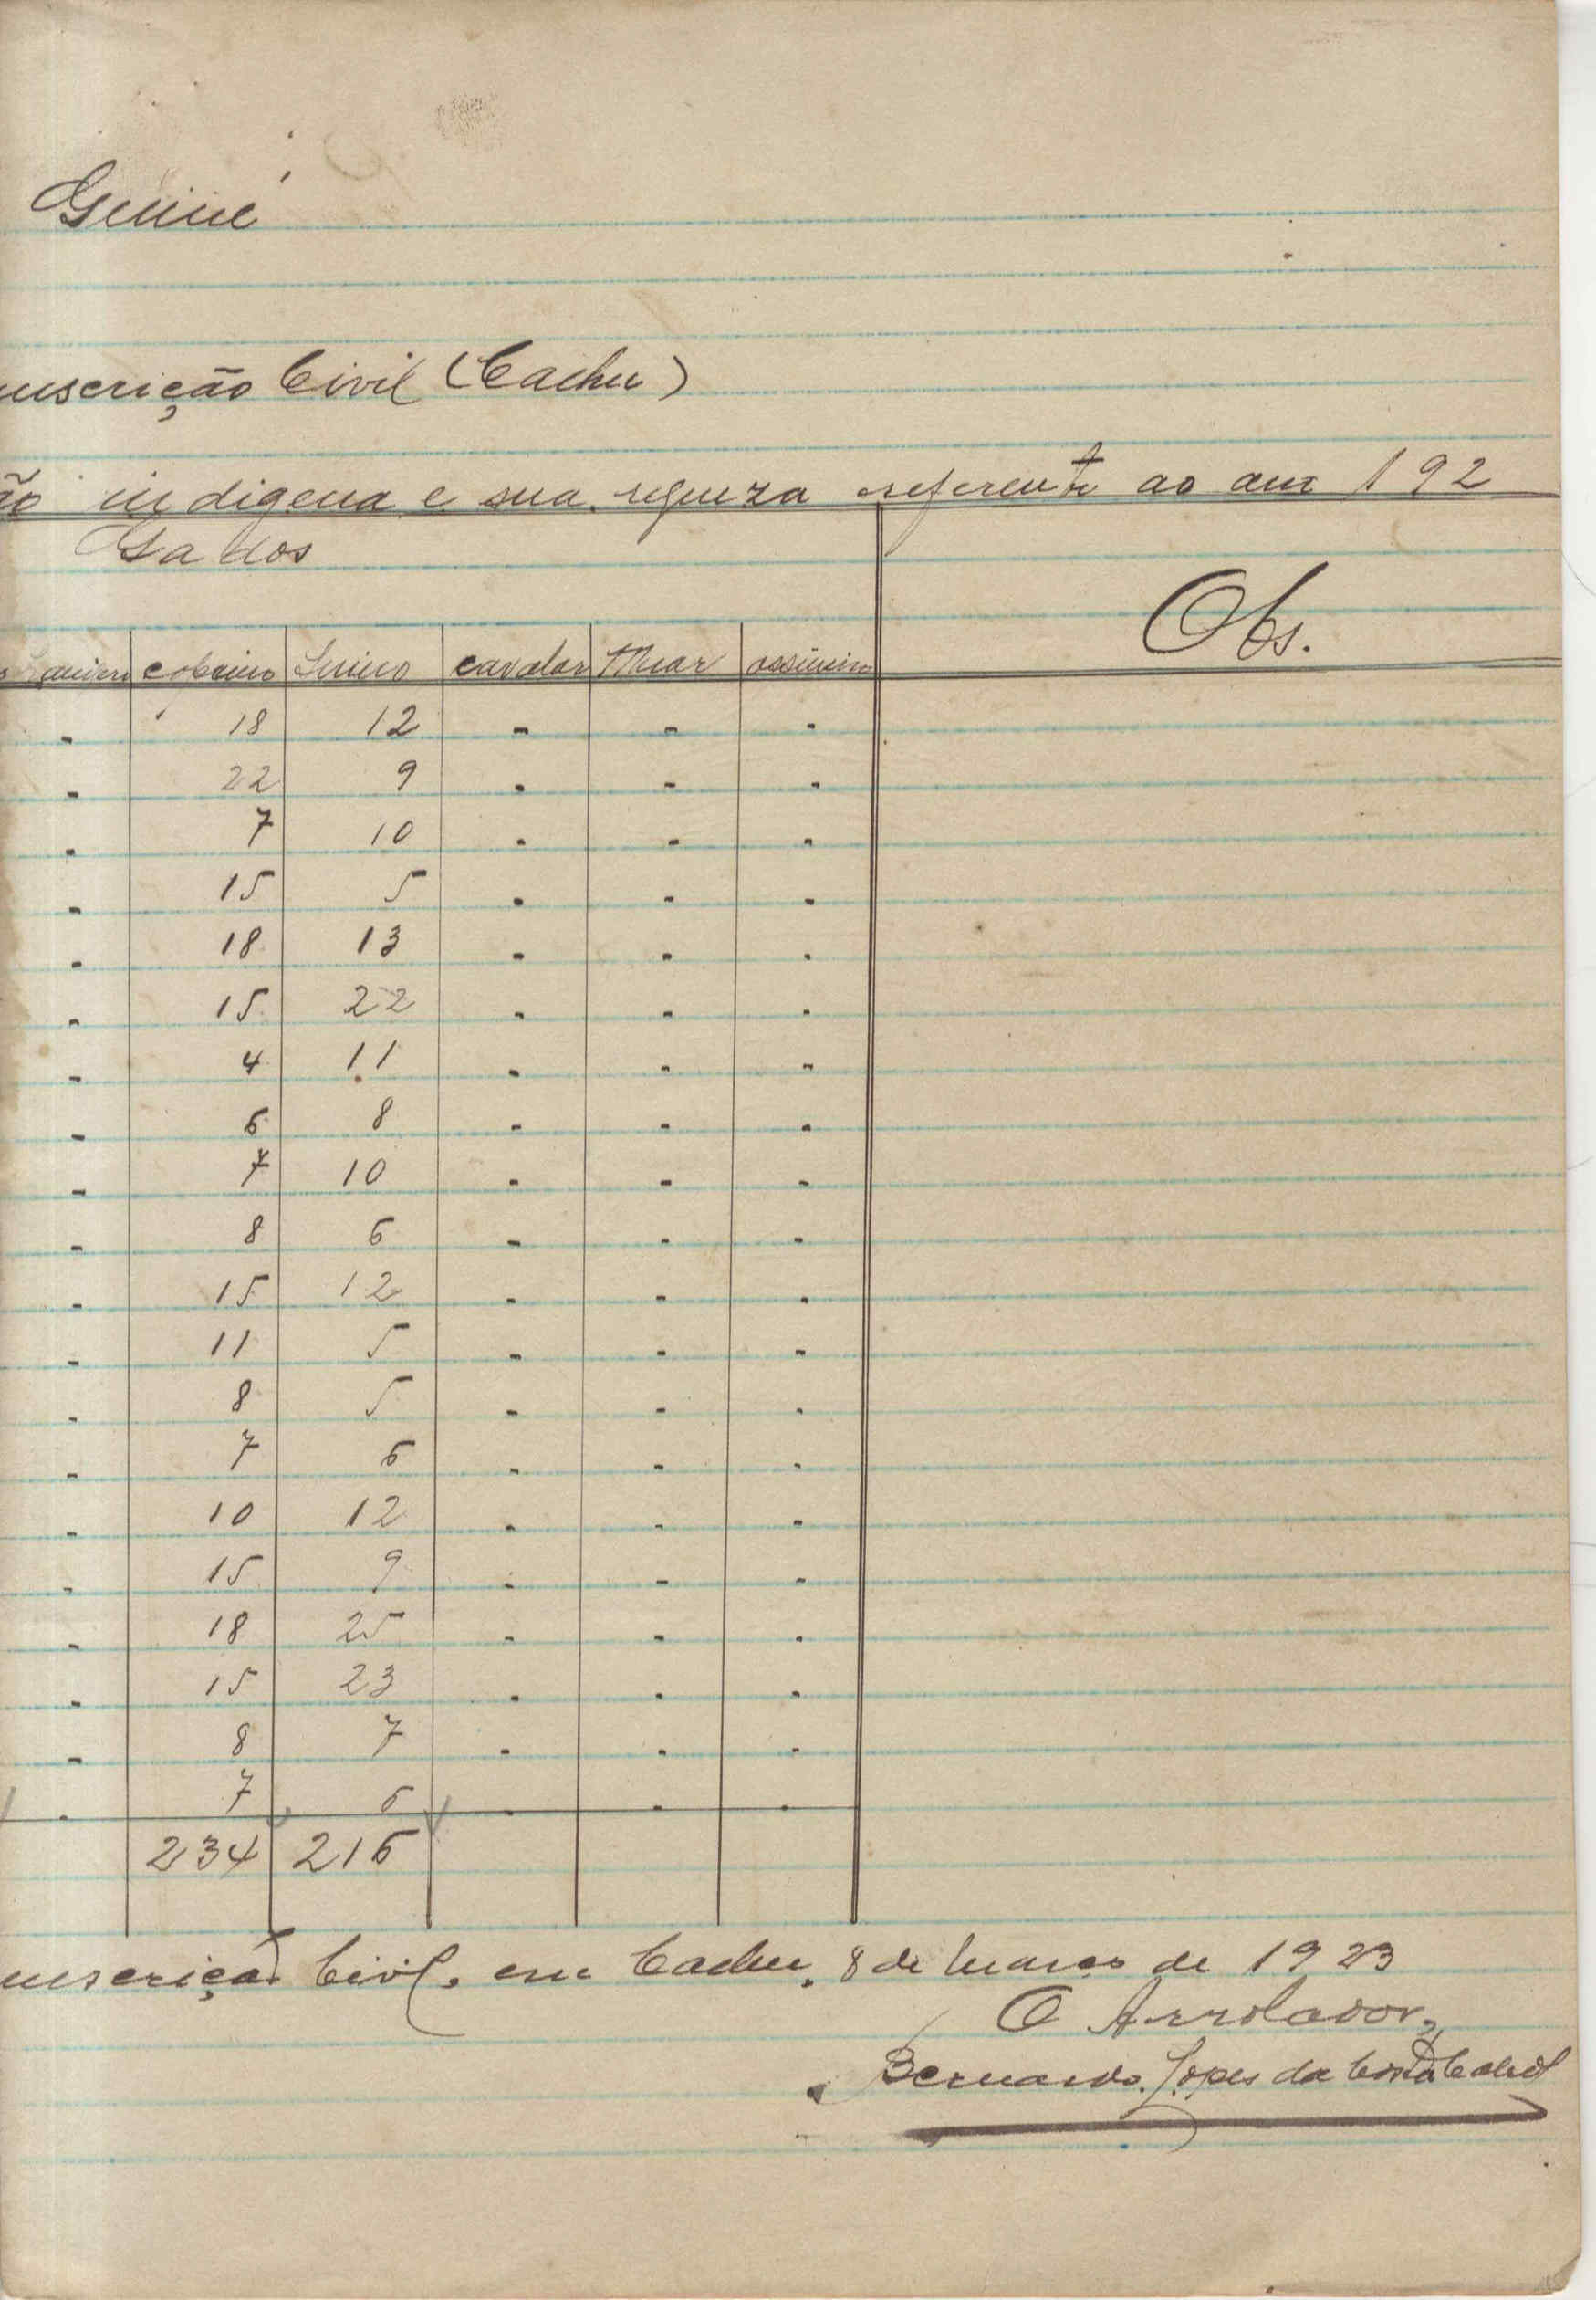 Guiné
unscrição Civil (Cacheu)
ão indigena e sua riqueza referente ao ano 192
Gados
caprino suino cavalar Muar assinino Obs.
- 18 12 - - -
- 22 9 - - -
- 7 10 - - -
- 15 5 - - -
- 18 13 - - -
- 15 22 - - -
- 4 11 - - -
- 6 8 - - -
- 7 10 - - -
- 8 6 - - -
- 15 12 - - -
- 11 5 - - -
- 8 5 - - -
- 7 6 - - -
- 10 12 - - -
- 15 9 - - -
- 18 25 - - -
- 15 23 - - -
- 8 7 - - -
- 7 6 - - -
234 216
unscrição Civil, em Cacheu, 8 de Março de 1923
O Arrolador,
Bernardo Lopes da Costa Cabral